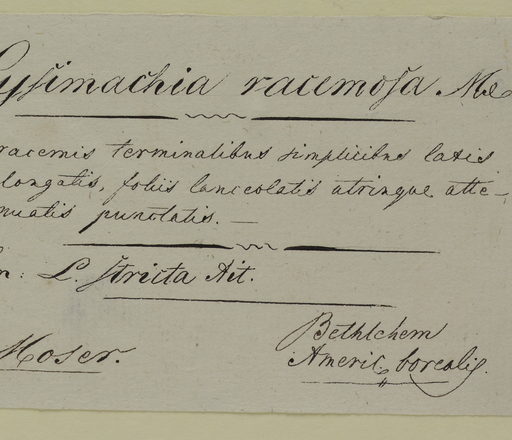 Lysimachia racemosa Mx
racemis terminalibus simplicibus laxis
longatis, foliis lanceolatis utrinque atte-
nuatis punctatis. —
n: L. stricta Ait.
Moser.
Bethlehem
Americ. borealis.